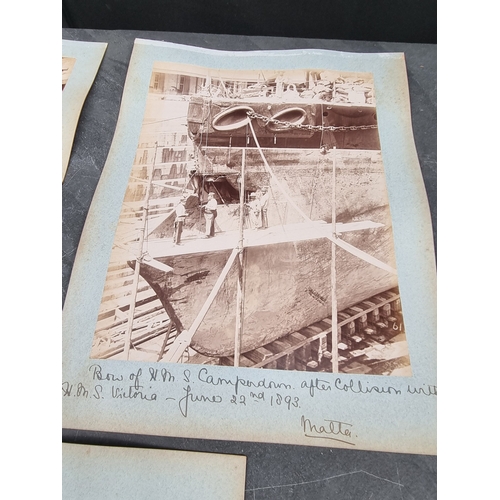 Bow of H M S. Camperdown after Collision with
H.M S. Victoria - June 22nd 1893.
Malta.
61